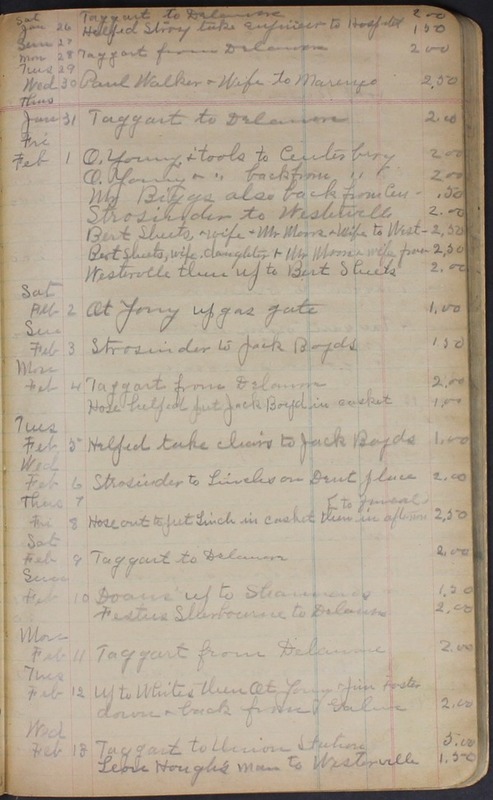 Sat Taggart to Delaware 2.00
Jan 26 Helped Stroy take engineer to Hospital 1.50
Sun 27
Mon 28 Taggart from Delaware 2.00
Tues 29
Wed 30 Paul Walker & Wife to Marengo 2.50
Thus
Jan 31 Taggart to Delaware 2.00
Fri
Feb 1 O. Young & tools to Centerberg 2.00
O. Young & " back from " " 2.00
Mr Biggs also back from Cen - .50
Strosinder to Westerville 2.00
Bert Sheets, & wife & Mr Moore & wife to West - 2.50
Bert Sheets, wife, daughter & Mr Moore & wife from 2.50
Westerville then up to Bert Sheets 2.00
Sat
Feb 2 At Young up gas gate 1.00
Sun
Feb 3 Strosinder to Jack Boyds 1.50
Mon
Feb 4 Taggart from Delaware 2.00
Hose helped put Jack Boyd in casket 1.00
Tues
Feb 5 Helped take chairs to Jack Boyds 1.00
Wed
Feb 6 Strosinder to Linches on Dent place 2.00
Thus 7 [to funeral
Fri 8 Hose out to put Linch in casket then in afternoon 2.50
Sat
Feb 9 Taggart to Delaware 2.00
Sun
Feb 10 Doane up to 1.50
Festus to Delaware 2.00
Mon
Feb 11 Taggart from Delaware 2.00
Tues
Feb 12 Up to Whites then At Young & Jim Foster
down & back from Galena 2.00
Wed
Feb 13 Taggart to Union Station 5.00
Leon Houghs man to Westerville 1.50